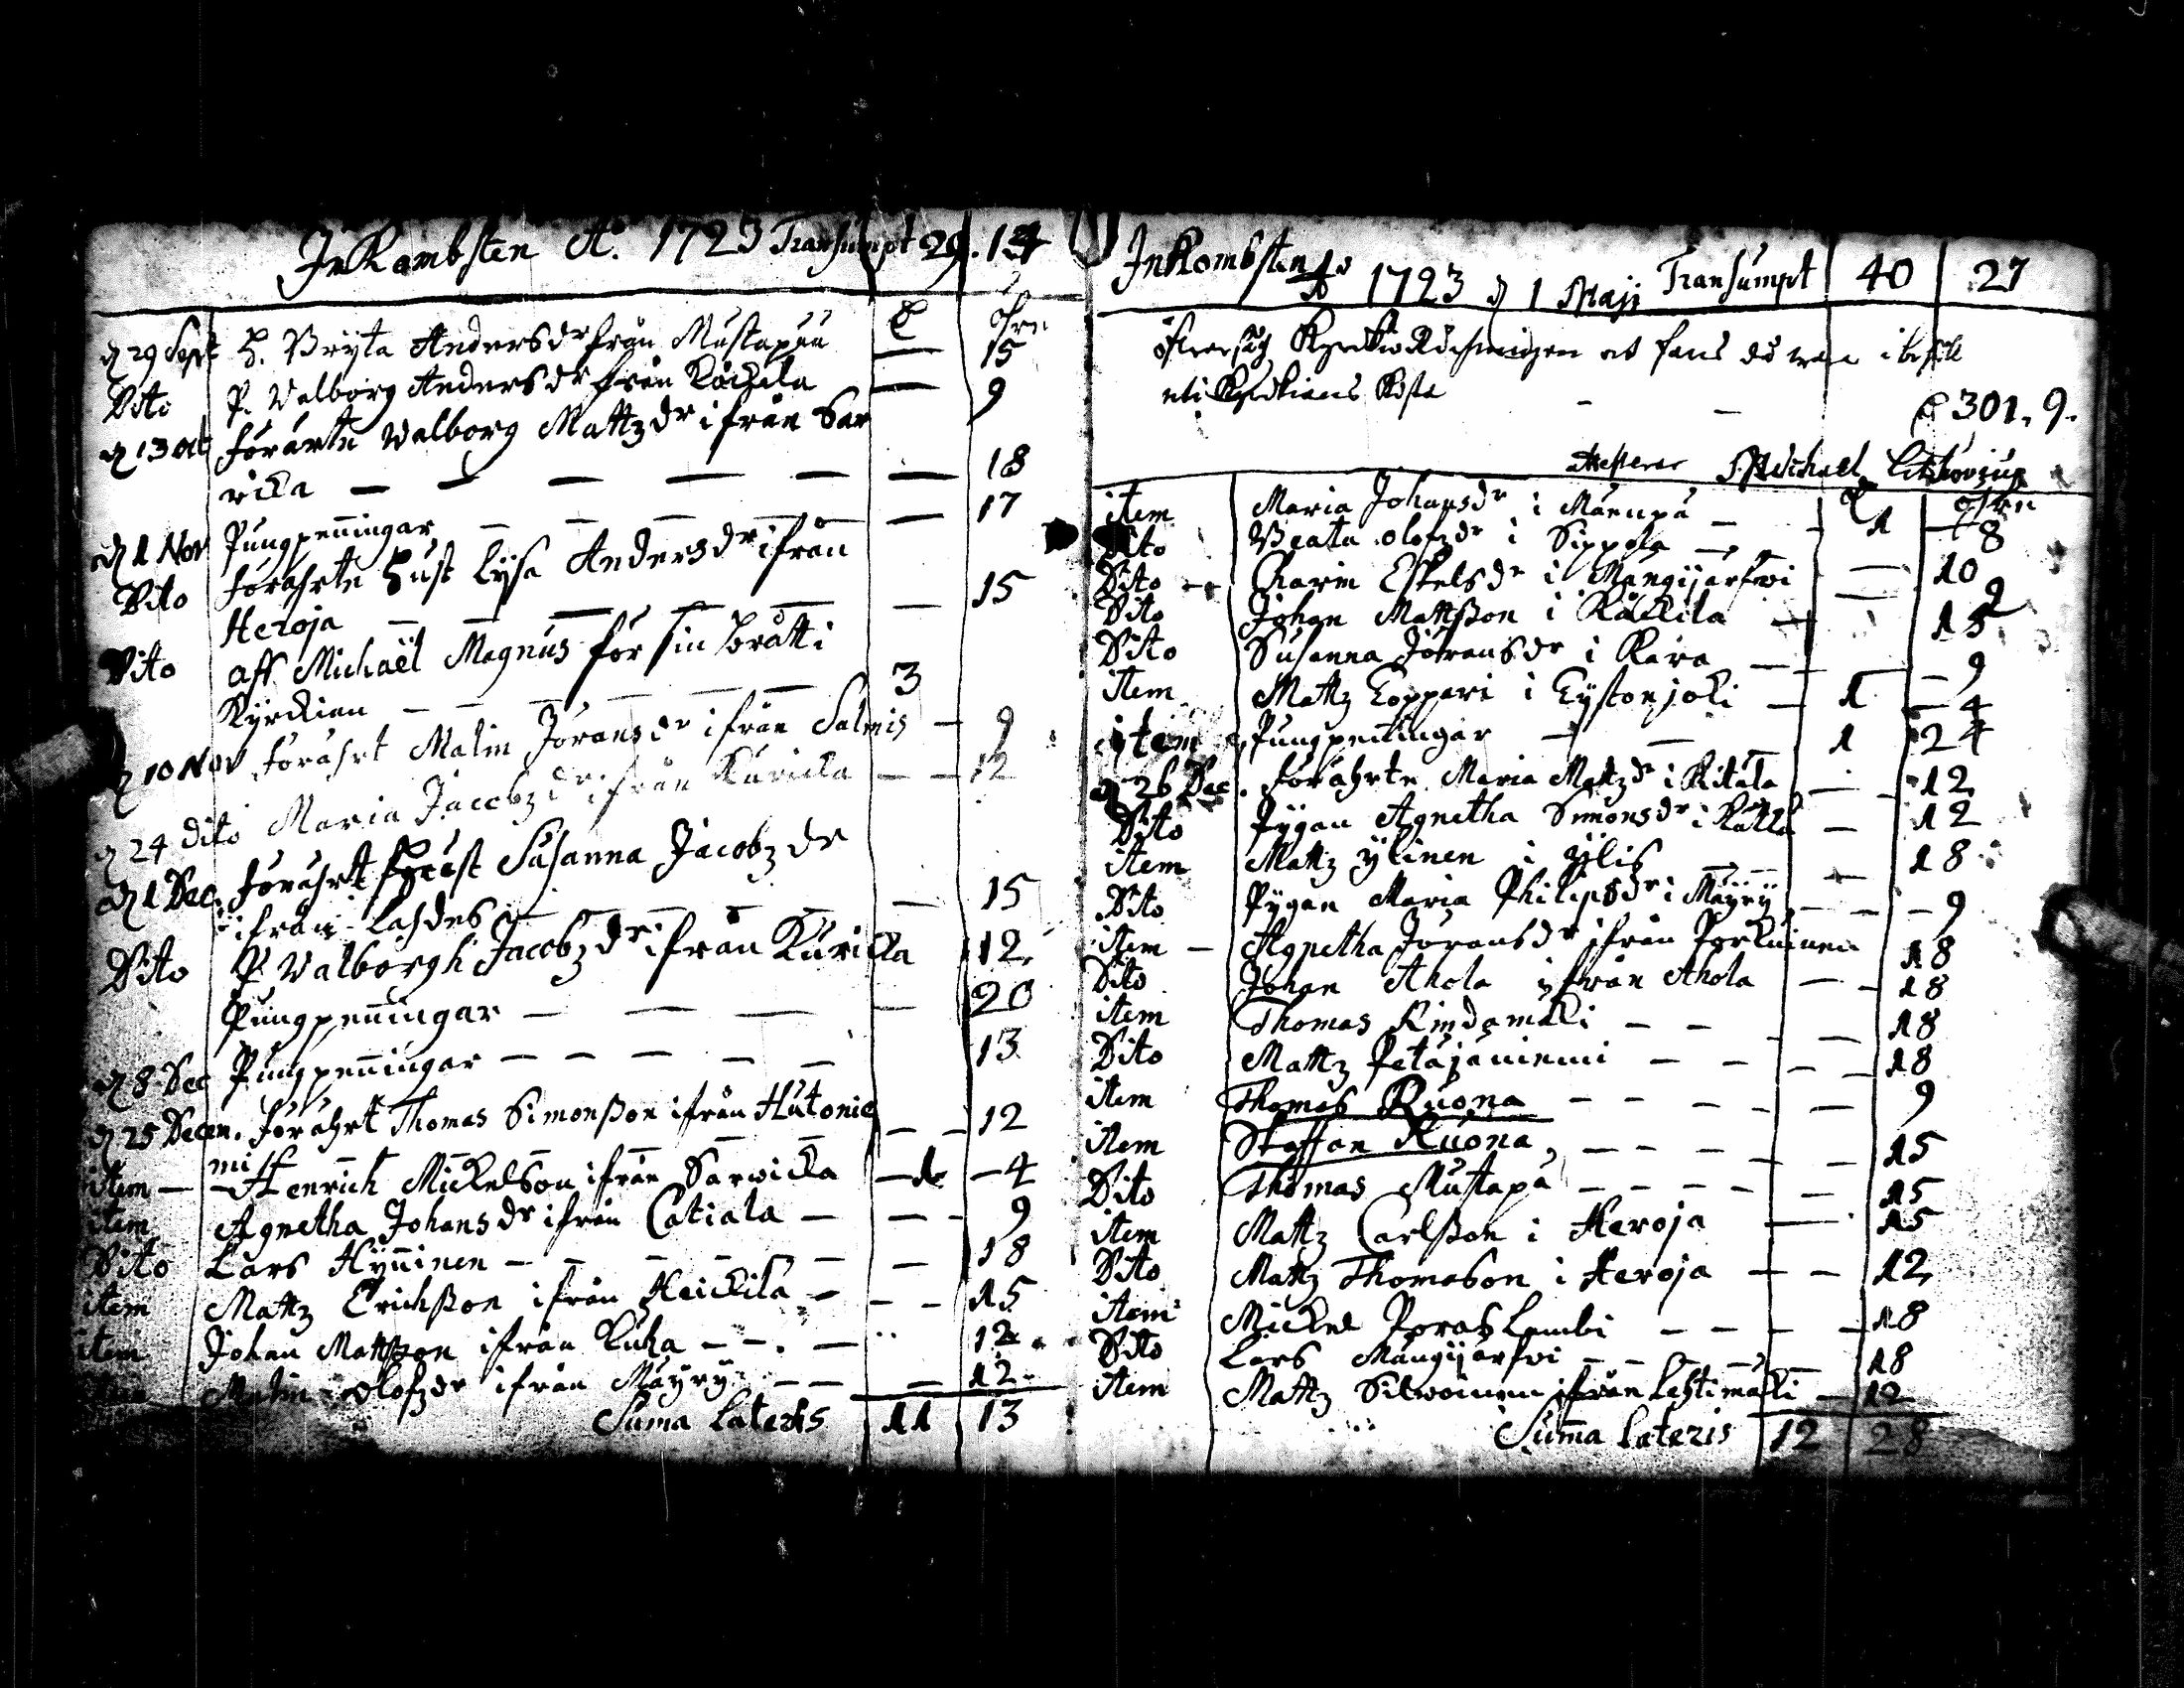 InKombsten Ao. 1723 Transumpt 29. 14
öhre
d 29 Sept H. Bryta Andersdr från Mustapää — 15
Dito P. Valborg Andersdr från Köckela — 9
d 13 Oct förärte Valborg Mattzdr ifrån Sar
vicka — — — — — — 18
d 1 Nov Pungpeñingar — — — — — 17
Dito förährte Hust Lysa Andersdr ifrån
Heroja — — — — — — 15
Dito aff Michaël Magnus för sin
Kyrckian — — — — — 3
d 10 Nov förährt Malin Joransdr ifrån Salmis — 9
d 24 dito Maria Jacobzdr ifrån Kuricka — — 12
d 1 Dec. förährt Hust Susanna Jacobzdr
ifrån Lahdes — — — — — 15
Dito P. Valborgh Jacobzdr ifrån Kuricka 12.
Pungpeñingar — — — — 20
d 8 Dec Pungpeñingar — — — — — 13
d 25 Decem. förährt Thomas Simonßon ifrån Hutonie
mi — — — — — — 12
item — Henrich Mickelson ifrån Sarwicka — 1 — 4
item Agnetha Johansdr ifrån Catiala — — 9
Dito Lars Hyñinen — — — — — — 18
item Mattz Erichßon ifrån Heickilä — — — 15
item Johan Mattßon ifrån Luha — — — 12
item Malin Olofzdr ifrån Mäyry — — — 12
Suma Lateris 11 13
InKombsten Ao 1723 d 1 Maji Transumpt 40 27
301. 9.
Attesterar Michael
öhre
item Maria Johansdr i Mäenpä — 1 — 8
Dito Beata Olofzdr i Sippola — — 10
Dito — Karin Eskelsdr i Mängijärfwi — 9
Dito Johan Mattßon i Käckilä — 15
Dito Susanna Jöransdr i Kara — — 9
item Mattz Loppari i Lystonjoki — 1 — 4
item Pungpeningar — — 1 24
d 26 Dec. förährte Maria Mattzdr i Ritala — 12
Dito Pygan Agnetha Simonsdr i — 12
item Mattz ylinen i ylis — — — 18
Dito Pygan Maria Philipsdr i Mäyry — — — 9
item — Agnetha Joransdr ifrån 18
Dito Johan Ahola ifrån Ahola — — 18
item Thomas Rindamäki — — — — 18
Dito Mattz Petäjäniemi — — — — 18
item Thomas Ruona — — — — — 9
item Staffan Ruona — — — — — 15
Dito Thomas Mustapä — — — — — 15
item Mattz Carlßon i Heroja — — 15
Dito Mattz Thomason i Heroja — — 12
item Mickel Poraslambi — — — — 18
Dito Lars Mängijärfwi — — — — — 18
item Mattz Silwoinen ifrån Lehtimäki — 12
Suma Lateris 12 28